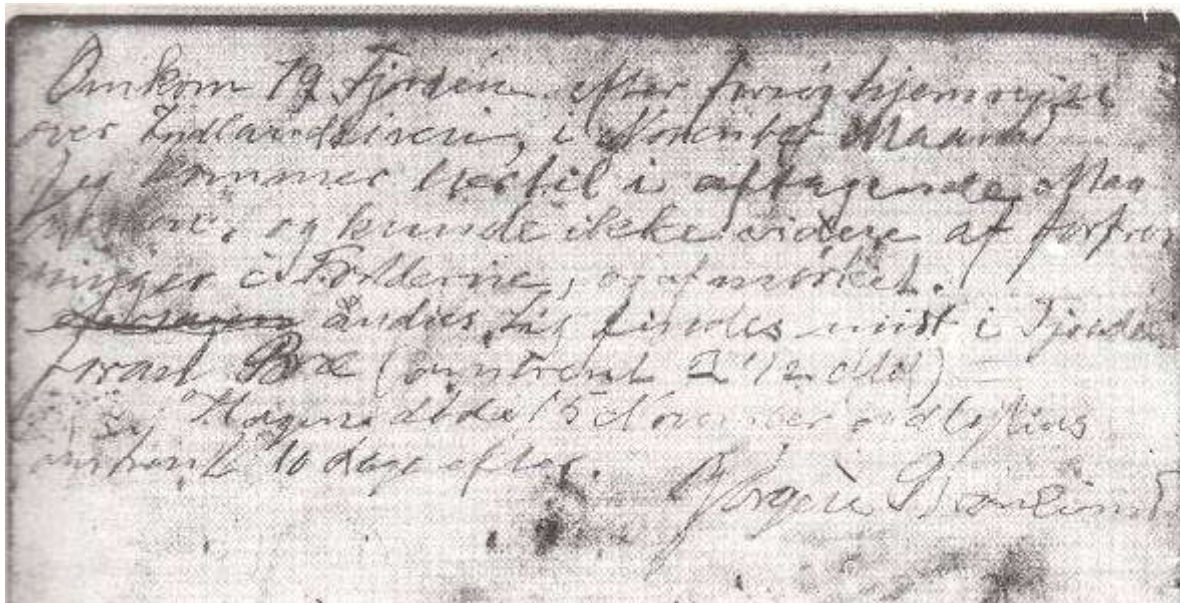 Omkom 79 Fjorden efter forsøg hjemrejse
over Indlandsisen, i November Maaned
Jeg kommer hertil i aftagende Maa
og kunde ikke videre af forfros
ninger i Födderne, og af mørket.
Andres Lig findes midt i Fjorden
foran Bræ (omtrent 2 1/2 Mil) —
Hagen döde 15 November og Mylius
omtrent 10 dage efter.
Jørgen Brønlund